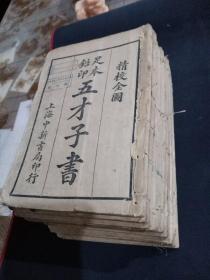 精校全圖
足本
鉛印
五才子書
上海中新書局印行